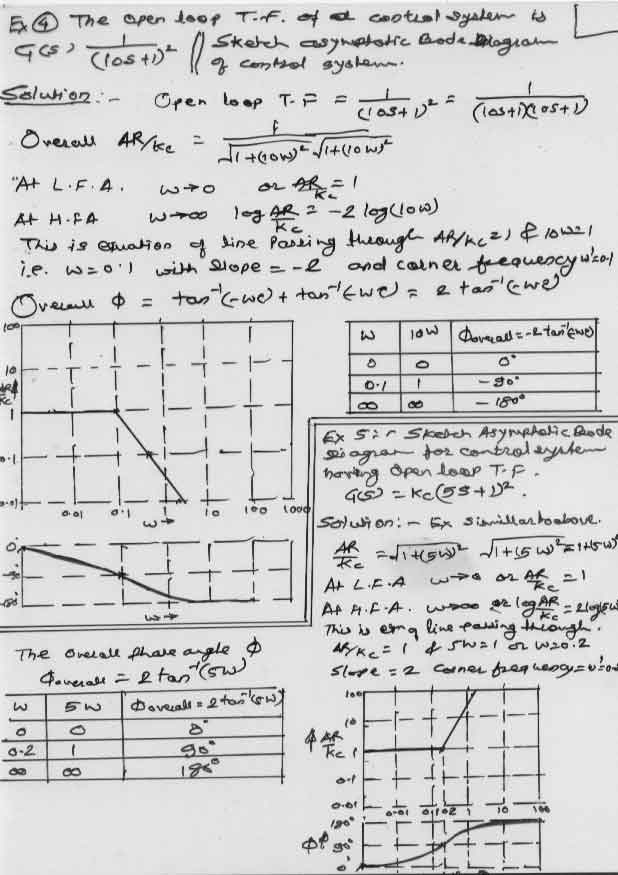 Ex ④ The open loop T.F. of a control system is
G(s) 1/(10s+1)² // Sketch asymptotic Bode Diagram
of control system.
Solution :- Open loop T-F = 1/(10s+1)² = 1/(10s+1)(10s+1)
Overall AR/Kc = 1/√1+(10w)² √1+(10w)²
At L.F.A. w→0 or AR/Kc = 1
At H.F.A w→∞ log AR/Kc = -2 log(10w)
This is equation of line passing through AR/Kc=1 & 10w=1
i.e. w=0.1 with slope = -2 and corner frequency w=0.1
Overall ϕ = tan⁻¹(-wτ) + tan⁻¹(-wτ) = 2 tan⁻¹(-wτ)
100
10
AR/Kc
1
0.1
0.01
0.01 0.1 1 10 100 1000
w→
0°
-90°
-180°
w→
w 10w ϕoverall=-2tan⁻¹(wτ)
0 0 0°
0.1 1 -90°
∞ ∞ -180°
Ex 5:- Sketch Asymptotic Bode
Diagram for control system
having open loop T-F.
G(s) = Kc(5s+1)².
Solution:- Ex simillar to above.
AR/Kc = √1+(5w)² √1+(5w)² = 1+(5w)²
At L.F.A w→0 or AR/Kc = 1
At H.F.A. w→∞ or log AR/Kc = 2log(5w)
This is eqn of line passing through.
AR/Kc = 1 & 5w=1 or w=0.2
Slope = 2 corner frequency=
The overall phase angle ϕ
ϕoverall = 2 tan⁻¹(5w)
w 5w ϕoverall=2tan⁻¹(5w)
0 0 0°
0.2 1 90°
∞ ∞ 180°
100
10
AR/Kc 1
0.1
0.01
0.01 0.1 0.2 1 10 100
180°
90°
0°